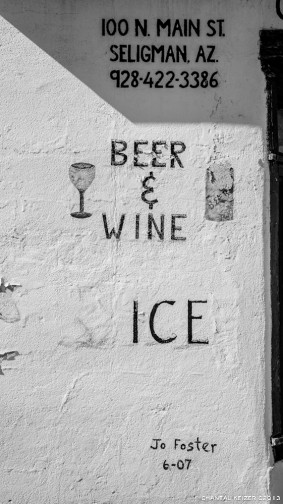 100 N. MAIN ST.
SELIGMAN, AZ.
928-422-3386
BEER
&
WINE
ICE
Jo Foster
6-07
CHANTAL KEIZER ©2013